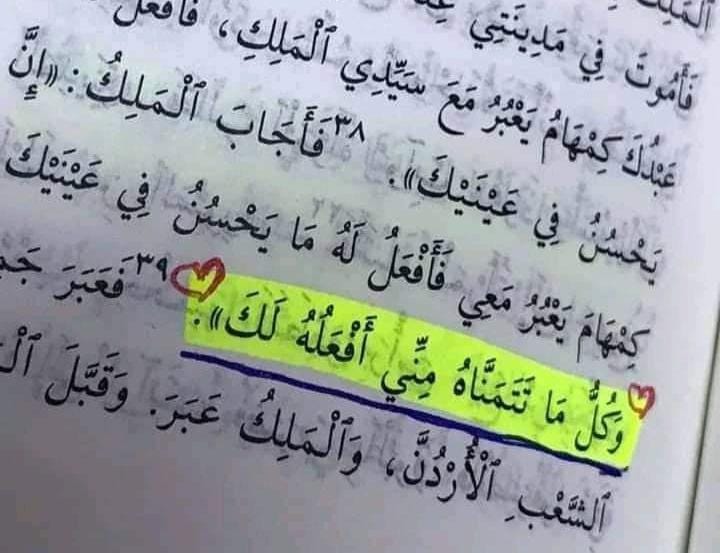 فَأَمُوتَ فِي مَدِينَتِي
عَبْدُكَ كِمْهَامُ يَعْبُرُ مَعَ سَيِّدِي ٱلْمَلِكِ، فَٱفْعَلْ
يَحْسُنُ فِي عَيْنَيْكَ». ٣٨فَأَجَابَ ٱلْمَلِكُ: «إِنَّ
كِمْهَامَ يَعْبُرُ مَعِي فَأَفْعَلُ لَهُ مَا يَحْسُنُ فِي عَيْنَيْكَ
وَكُلُّ مَا تَتَمَنَّاهُ مِنِّي أَفْعَلُهُ لَكَ». ٣٩فَعَبَرَ
ٱلشَّعْبِ ٱلْأُرْدُنَّ، وَٱلْمَلِكُ عَبَرَ. وَقَبَّلَ